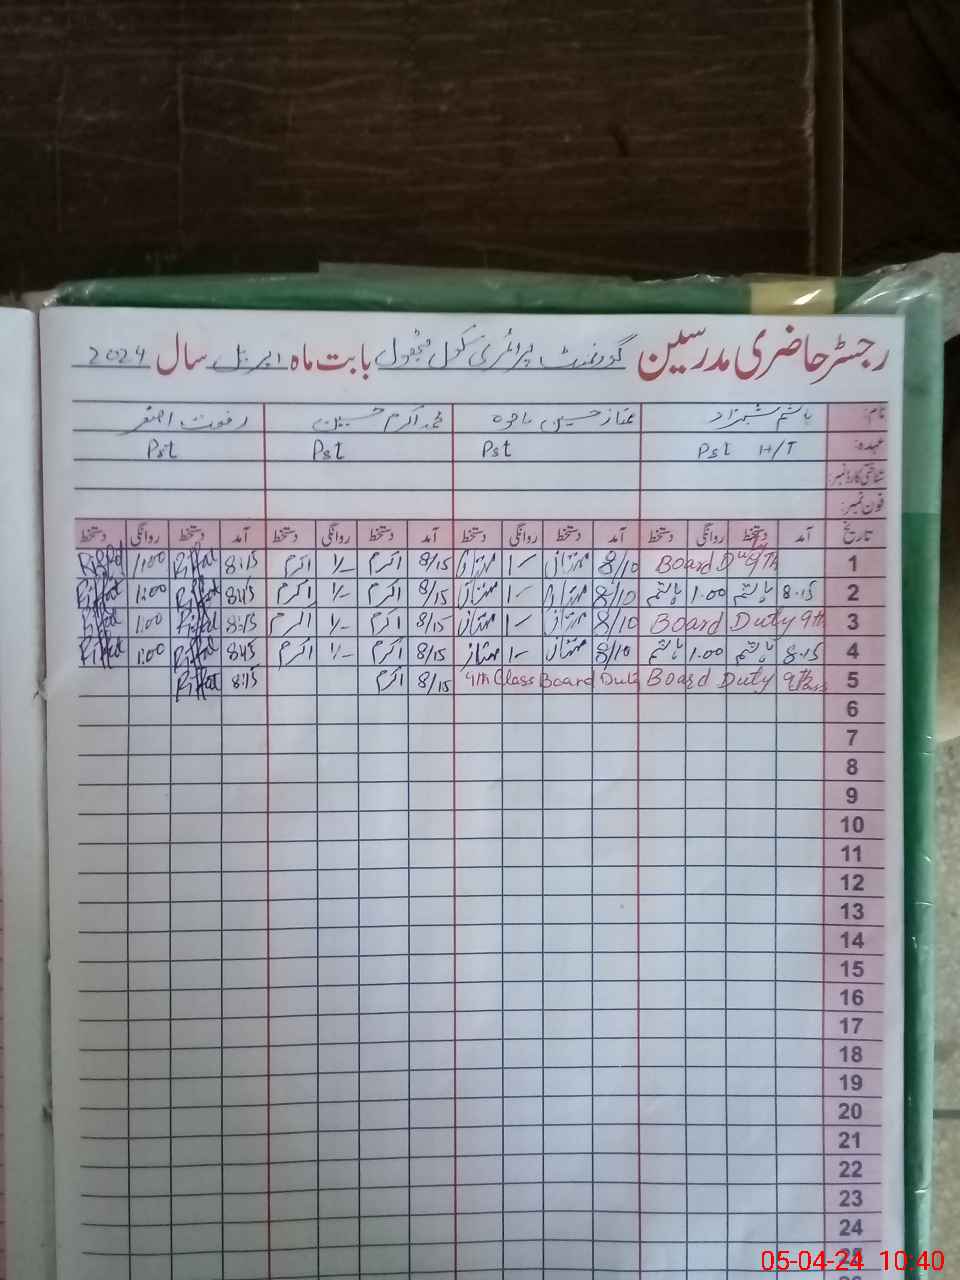 رجسٹر حاضری مدرسین گورنمنٹ پرائمری سکول بابت ماہ اپریل سال 2024
نام: ہاشم شہزاد ممتاز حسین محمد اکرم حسین رفعت اصغر
عہدہ: Pst H/T Pst Pst Pst
شناختی کارڈ نمبر:
فون نمبر:
تاریخ آمد دستخط روانگی دستخط آمد دستخط روانگی دستخط آمد دستخط روانگی دستخط آمد دستخط روانگی دستخط
1 Board Duty 9th 8/10 ممتاز 1/- ممتاز 8/15 اکرم 1/- اکرم 8:15 Riffat 1:00 Riffat
2 8.15 ہاشم 1.00 ہاشم 8/10 ممتاز 1/- ممتاز 8/15 اکرم 1/- اکرم 8:15 Riffat 1:00 Riffat
3 Board Duty 9th 8/10 ممتاز 1/- ممتاز 8/15 اکرم 1/- اکرم 8:15 Riffat 1:00 Riffat
4 8.15 ہاشم 1.00 ہاشم 8/10 ممتاز 1/- ممتاز 8/15 اکرم 1/- اکرم 8:15 Riffat 1:00 Riffat
5 Board Duty 9th Class 9th Class Board Duty 8/15 اکرم 8:15 Riffat
6
7
8
9
10
11
12
13
14
15
16
17
18
19
20
21
22
23
24
25
05-04-24 10:40